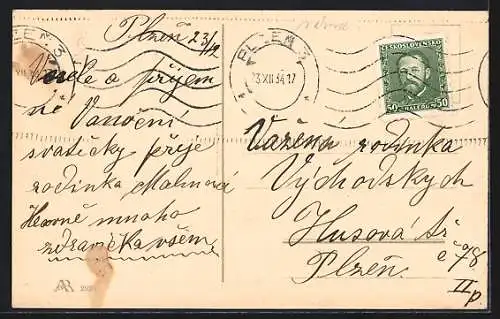 Plzeň 23/12
Vesele a příjem
né Vánoční
svátečky přeje
rodinka Malinová
mnoho
zdravíčka všem
PLZEŇ
23 XII 34. 17
ČESKOSLOVENSKO
50 HALÉŘŮ 50
Vážená rodinka
Východských
Husová tř.
č 78
Plzeň.
II p.